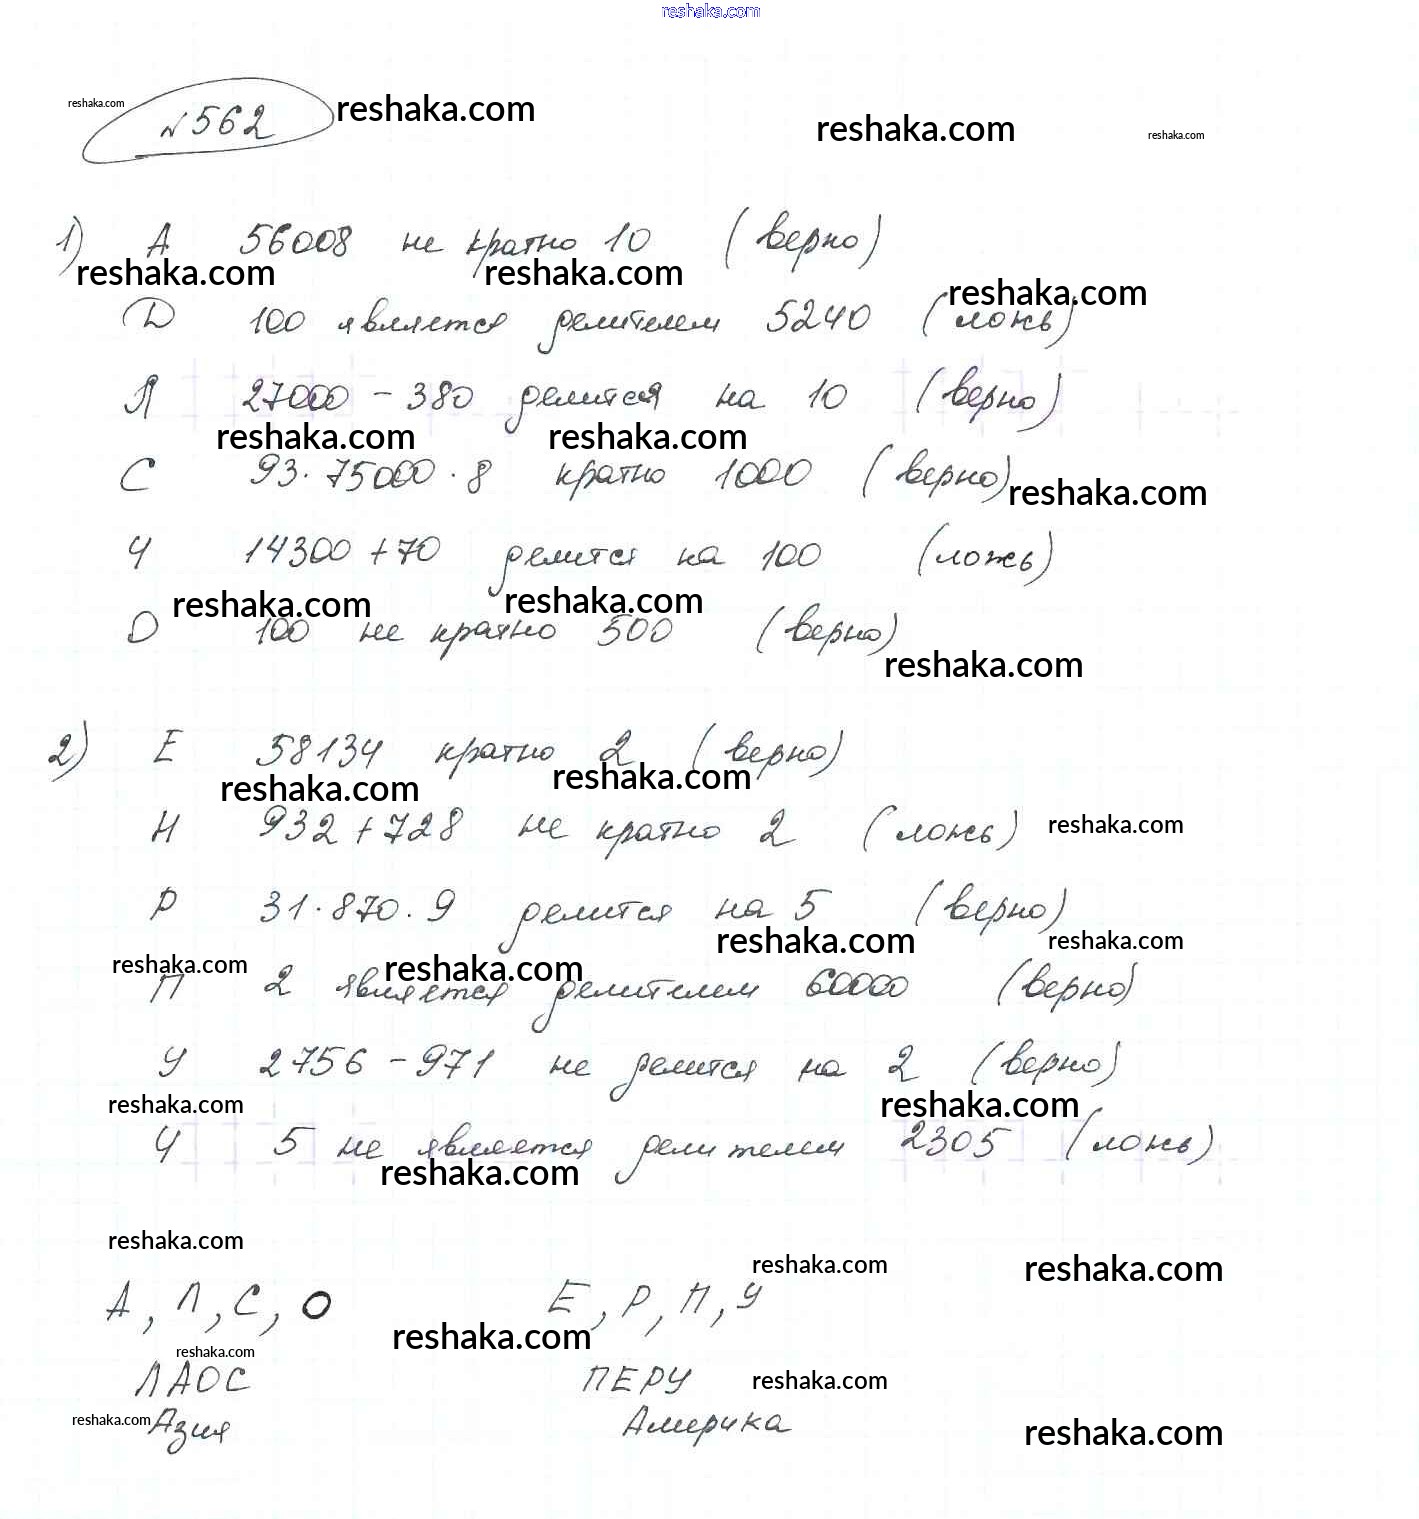 reshaka.com
reshaka.com reshaka.com reshaka.com reshaka.com
№562
1) А 56008 не кратно 10 (верно)
reshaka.com reshaka.com reshaka.com
D 100 является делителем 5240 (ложь)
Л 27000 - 380 делится на 10 (верно)
reshaka.com reshaka.com
С 93·75000·8 кратно 1000 (верно)
reshaka.com
Ч 14300 + 70 делится на 100 (ложь)
reshaka.com reshaka.com
О 100 не кратно 500 (верно)
reshaka.com
2) Е 58134 кратно 2 (верно)
reshaka.com reshaka.com
Н 932 + 728 не кратно 2 (ложь) reshaka.com
Р 31·870·9 делится на 5 (верно)
reshaka.com reshaka.com
reshaka.com reshaka.com
П 2 является делителем 60000 (верно)
У 2756 - 971 не делится на 2 (верно)
reshaka.com reshaka.com
Ч 5 не является делителем 2305 (ложь)
reshaka.com
reshaka.com
reshaka.com reshaka.com
А, Л, С, О Е, Р, П, У
reshaka.com reshaka.com
ЛАОС ПЕРУ reshaka.com
reshaka.com Азия Америка reshaka.com